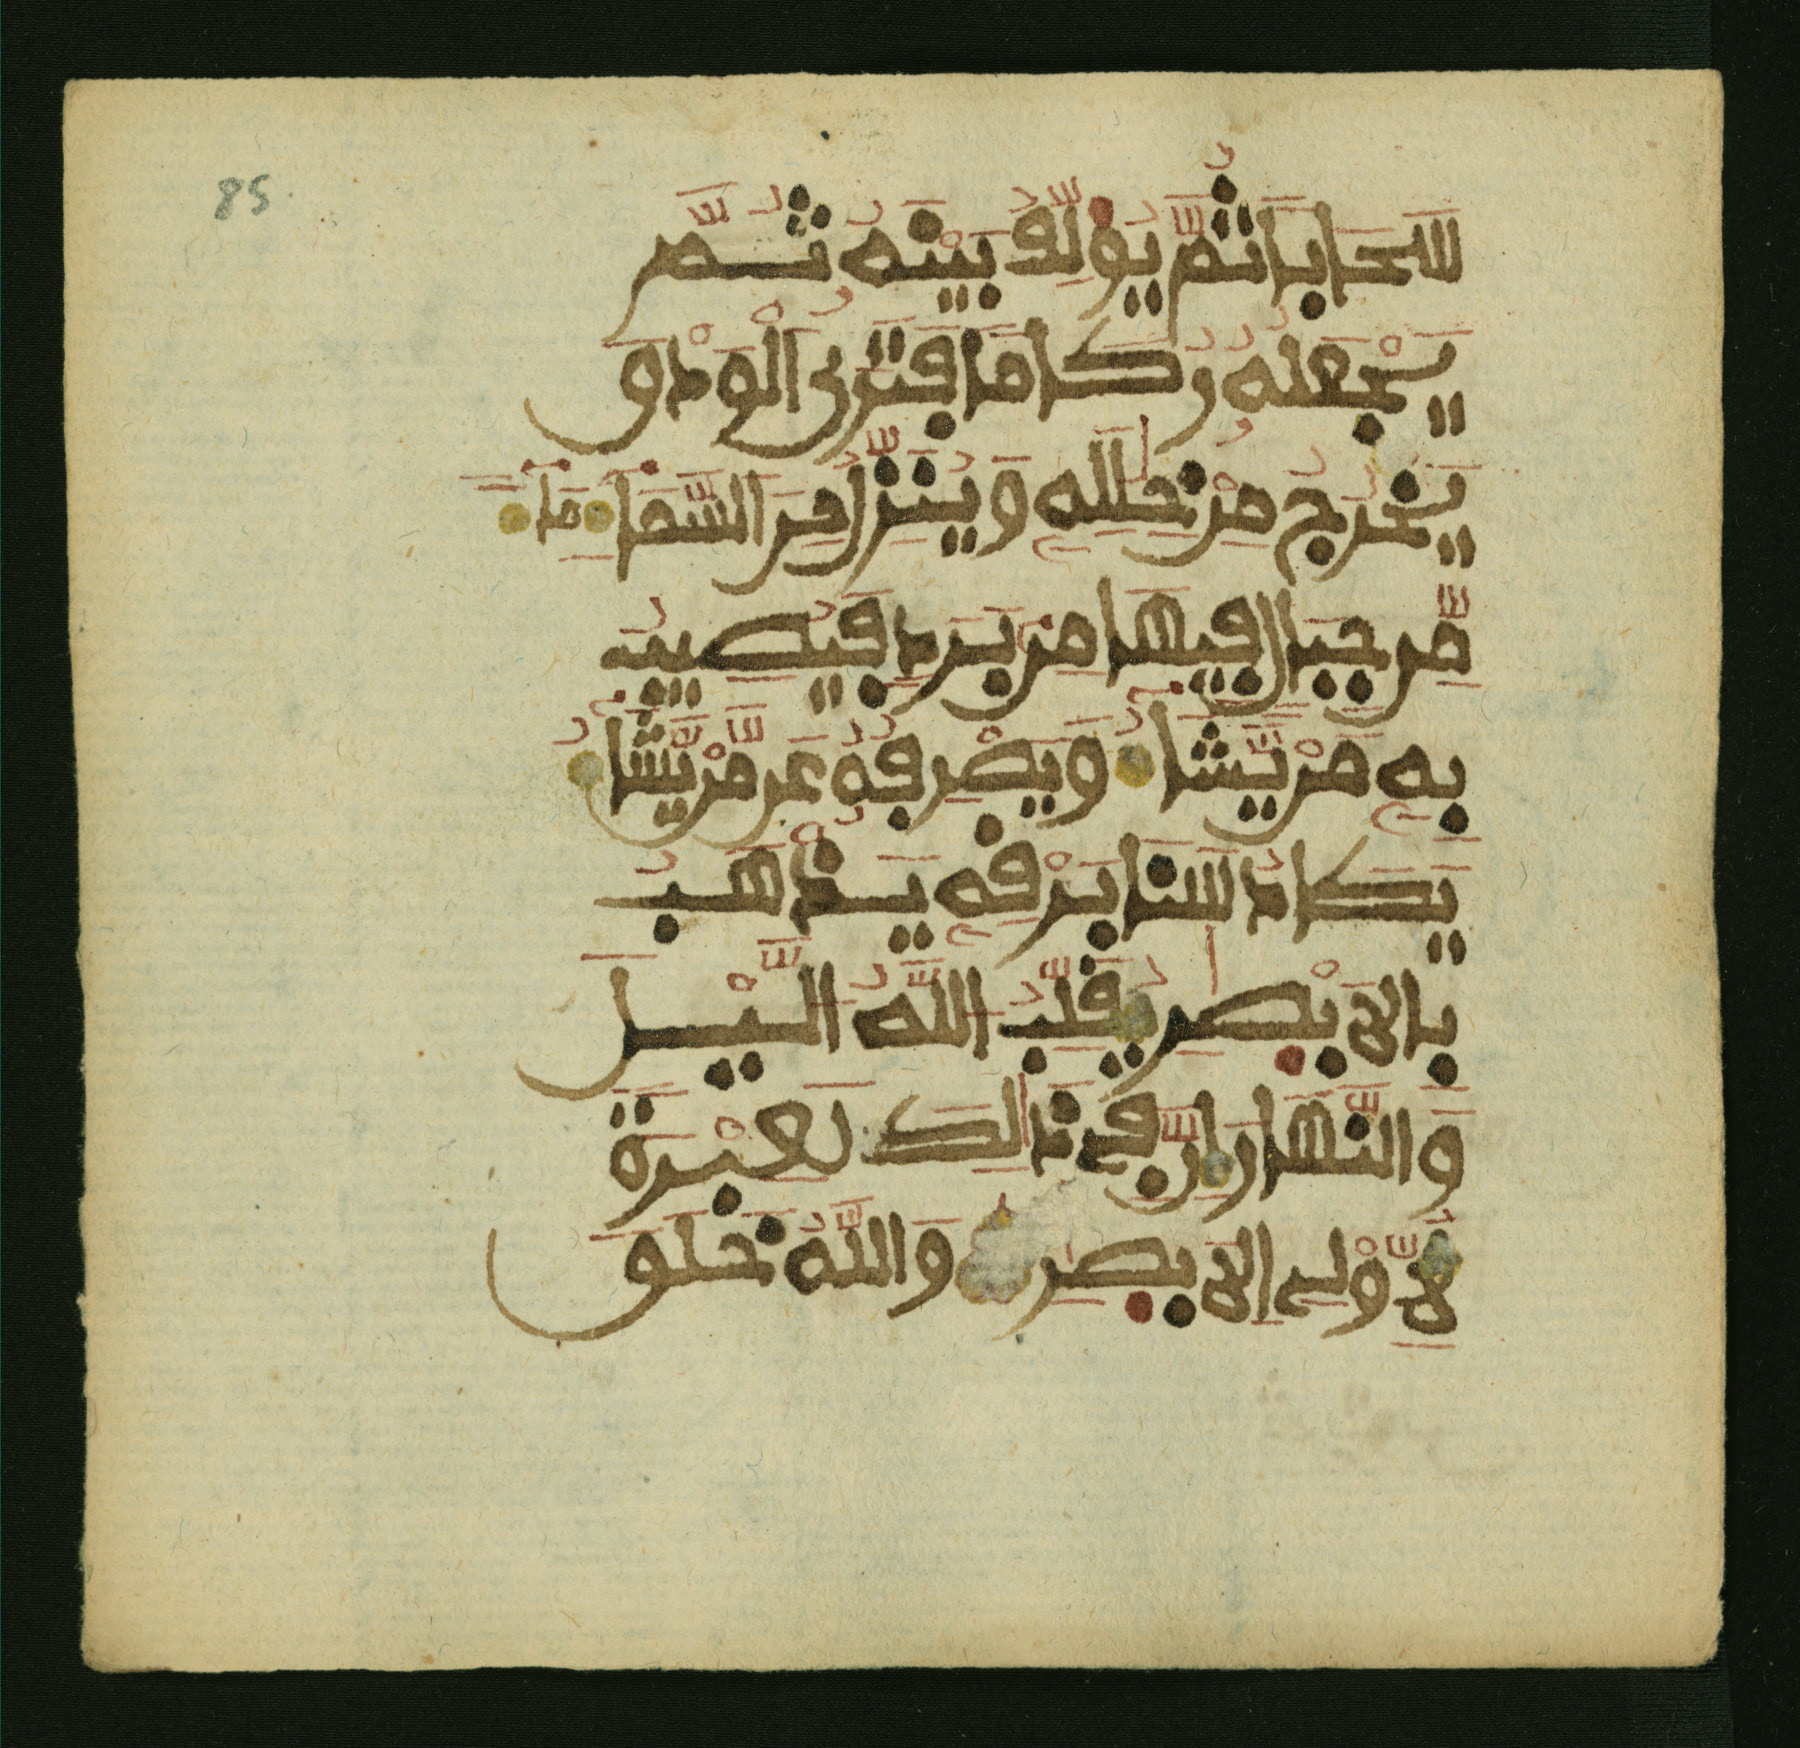 85
سحابا ثم يولف بينه ثم
يجعله ركاما فترى الودق
يخرج من خلله وينزل من السما ما
من جبال فيها من برد فيصيب
به من يشا ويصرفه عن من يشا
يكاد سنا برقه يذهب
بالابصر يقلب الله اليل
والنهار ان في ذالك لعبرة
لاولى الابصر والله خلق